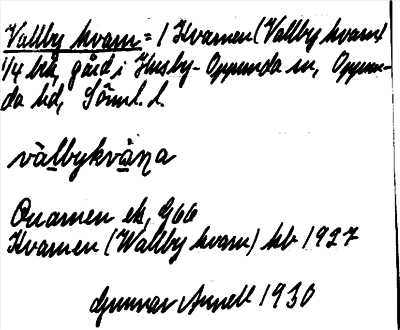 Vallby kvarn = 1 Kvarnen (Vallby kvarn)
1/4 frk, gård i Husby-Oppunda sn, Oppun-
da hd, Söml. l.
vàlbykvàṇa
Quarnen ek, G66
Kvarnen (Wallby kvarn) hb 1927
Gunnar Arnell 1930